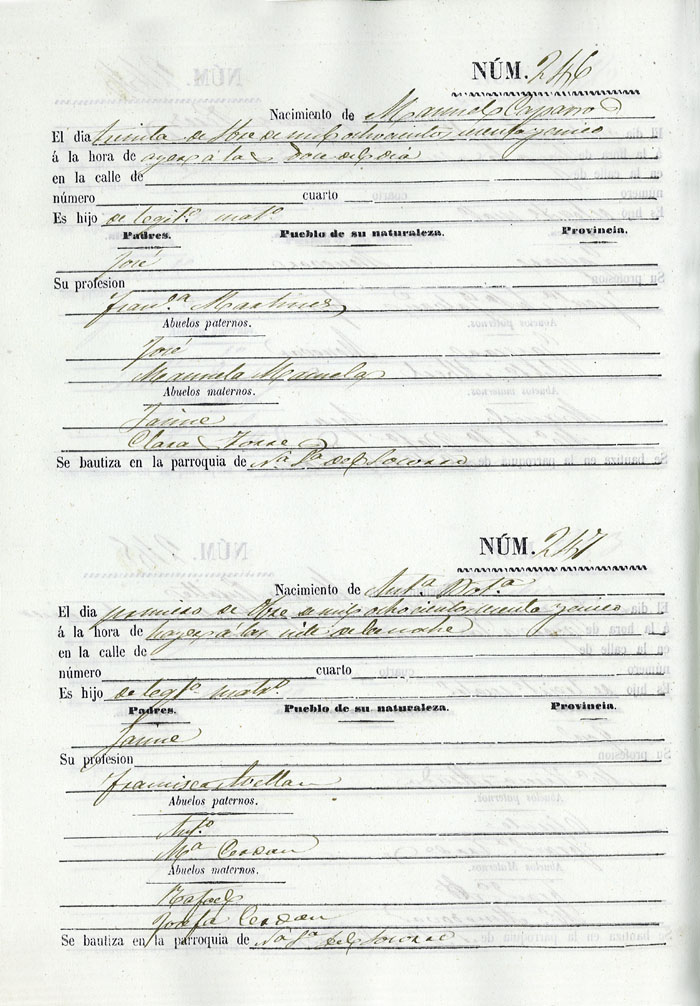 NÚM. 246
Nacimiento de Manuel Caparros
El dia treinta de 9bre de mil ochocientos
á la hora de ayer á las doce del dia
en la calle de
número cuarto
Es hijo de legit.º mat.º
Padres. Pueblo de su naturaleza. Provincia.
José
Su profesion
Fran.ca Martinez
Abuelos paternos.
José
Manuela
Abuelos maternos.
Jaime
Clara Torre
Se bautiza en la parroquia de N.a S.a del Socorro
NÚM. 247
Nacimiento de Ant.a
El dia primero de de mil ochocientos y cinco
á la hora de á las siete de la noche
en la calle de
número cuarto
Es hijo de legt.º matr.º
Padres. Pueblo de su naturaleza. Provincia.
Jaime
Su profesion
Francisca Avellan
Abuelos paternos.
Ant.º
M.a Cerdan
Abuelos maternos.
Rafael
Josefa Cerdan
Se bautiza en la parroquia de N.a S.a del Socorro